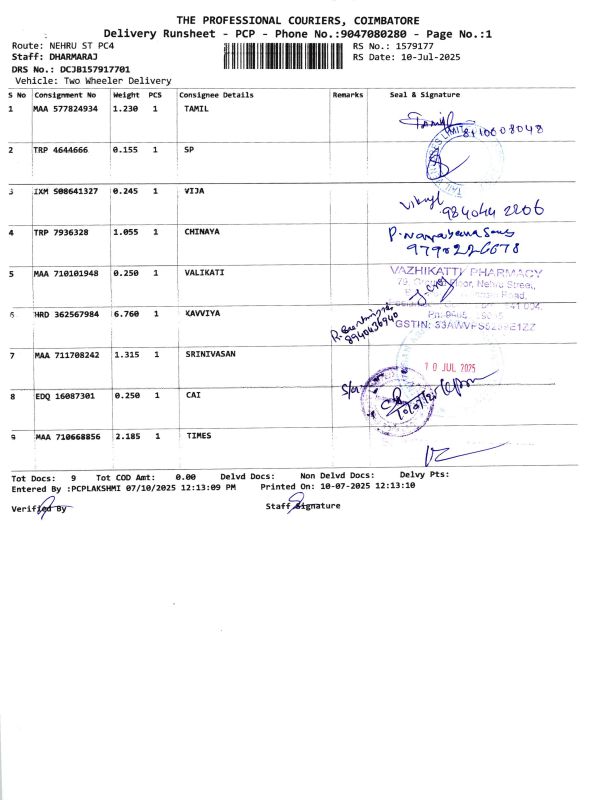 THE PROFESSIONAL COURIERS, COIMBATORE
Delivery Runsheet - PCP - Phone No.:9047080280 - Page No.:1
Route: NEHRU ST PC4 RS No.: 1579177
Staff: DHARMARAJ RS Date: 10-Jul-2025
DRS No.: DCJB157917701
Vehicle: Two Wheeler Delivery
S No Consignment No Weight PCS Consignee Details Remarks Seal & Signature
1 MAA 577824934 1.230 1 TAMIL
Tamil 8110008048
2 TRP 4644666 0.155 1 SP
3 IXM 508641327 0.245 1 VIJA
984044 2206
4 TRP 7936328 1.055 1 CHINAYA
9790226678
5 MAA 710101948 0.250 1 VALIKATI
VAZHIKATTI PHARMACY
79, Floor, Nehru Street,
Road,
6 HRD 362567984 6.760 1 KAVVIYA
8940636940
GSTIN: 33AWVPS5239E1ZZ
7 MAA 711708242 1.315 1 SRINIVASAN
10 JUL 2025
8 EDQ 16087301 0.250 1 CAI
9 MAA 710668856 2.185 1 TIMES
Tot Docs: 9 Tot COD Amt: 0.00 Delvd Docs: Non Delvd Docs: Delvy Pts:
Entered By :PCPLAKSHMI 07/10/2025 12:13:09 PM Printed On: 10-07-2025 12:13:10
Verified By Staff Signature